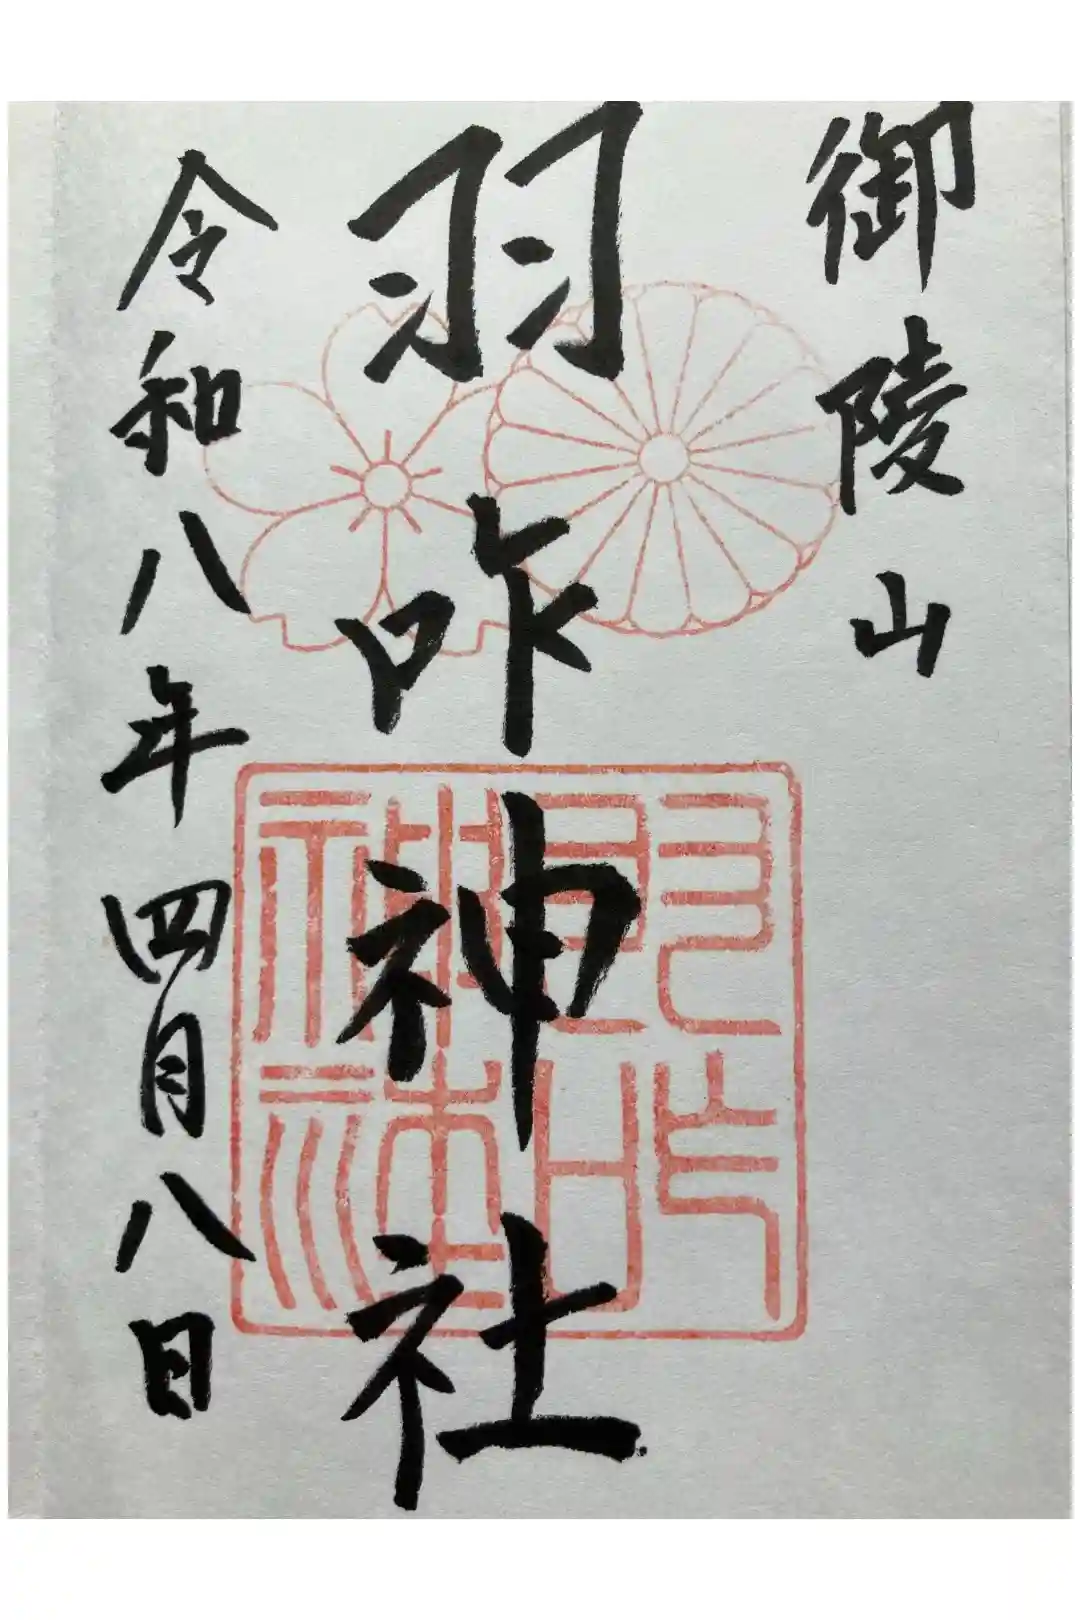 御陵山
羽咋神社
羽咋神社
令和八年四月八日